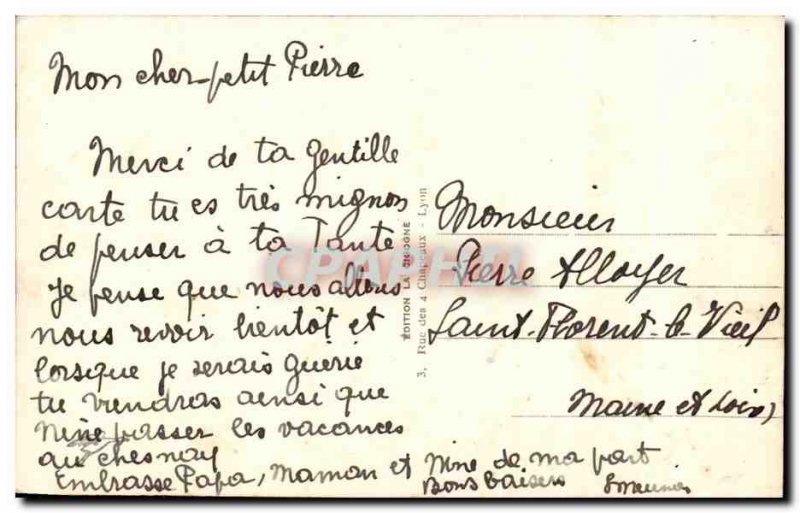 Mon cher petit Pierre
Merci de ta gentille
carte tu es très mignon
de penser à ta Tante
Je pense que nous allons
nous revoir bientôt et
lorsque je serais guérie
tu viendras ainsi que
Nine passer les vacances
au chesnay
Embrasse Papa, Maman et Nine de ma part
Bons baisers
EDITION LA CIGOGNE
3, Rue des 4 Chapeaux - Lyon
Monsieur
Pierre
Saint-Florent-le-Vieil
Maine et Loire
CPAPHIL